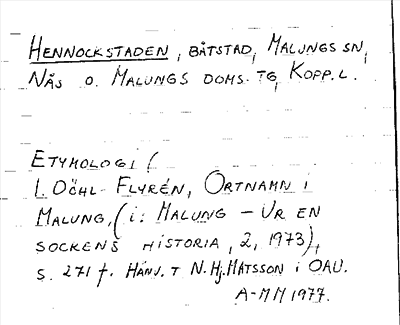 HENNOCKSTADEN, BÅTSTAD, MALUNGS SN,
NÅS O. MALUNGS DOMS. TG, KOPP. L.
ETYMOLOGI (
L. DÖHL FLYRÉN, ORTNAMN I
MALUNG, (i: MALUNG – UR EN
SOCKENS HISTORIA, 2, 1973),
S. 271 f. HÄNV. T N. Hj. MATSSON i OAU.
A-MM 1977.